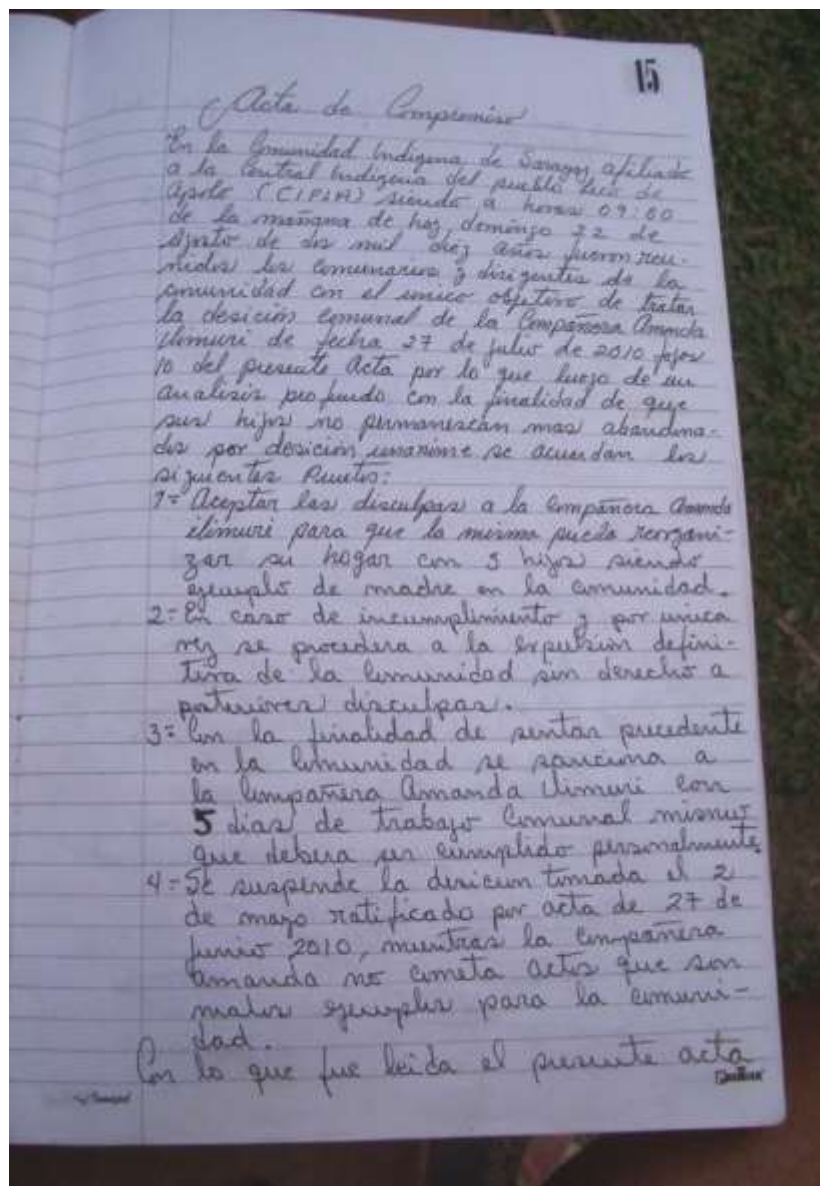 15
Acta de Compromiso
En la Comunidad Indigena de Sarayoj, afiliada
a la Central Indigena del pueblo Leco de
Apolo (CIPLA) siendo a horas 09:00
de la mañana de hoy, domingo 22 de
Agosto de dos mil diez años fueron reu-
nidos los comunarios y dirigentes de la
comunidad con el unico objetivo de tratar
la desición comunal de la Compañera Amanda
Ilimuri de fecha 27 de julio de 2010 fojas
10 del presente Acta por lo que luego de un
analisis profundo con la finalidad de que
sus hijos no permanescan mas abandona-
dos por desición unanime se acuerdan los
siguientes Puntos:
1= Aceptar las disculpas a la compañera Amanda
ilimuri para que la misma pueda reorgani-
zar su hogar con 5 hijos siendo
ejemplo de madre en la comunidad.
2= En caso de incumplimiento y por unica
vez se procedera a la expulsión defini-
tiva de la Comunidad sin derecho a
posteriores disculpas.
3= Con la finalidad de sentar precedente
en la Comunidad se sanciona a
la Compañera Amanda Ilimuri con
5 dias de trabajo Comunal mismo
que debera ser cumplido personalmente.
4= Se suspende la desicion tomada el 2
de mayo ratificado por acta de 27 de
junio 2010, mientras la compañera
amanda no cometa actos que son
malos ejemplos para la comuni-
dad.
Con lo que fue leida el presente acta